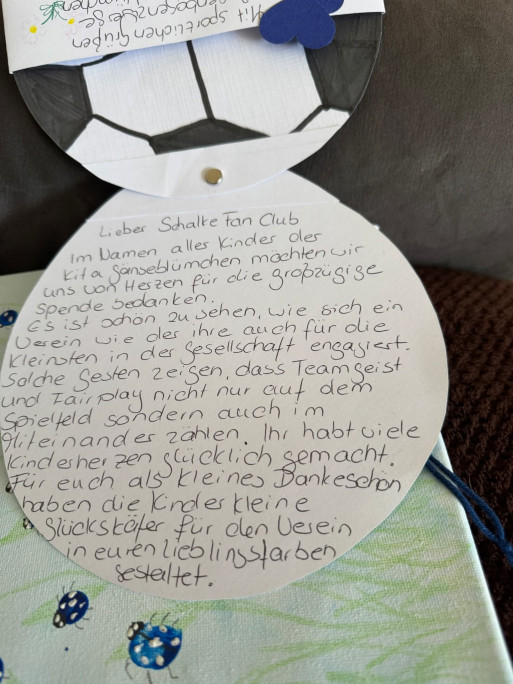 Mit sportlichen grüßen
Lieber Schalke Fan Club
Im Namen alles Kinder der
Kita Gänseblümchen möchten wir
uns von Herzen für die großzügige
Spende bedanken.
Es ist schön zu sehen, wie sich ein
Verein wie der ihre auch für die
Kleinsten in der Gesellschaft engagiert.
Solche Gesten zeigen, dass Teamgeist
und Fairplay nicht nur auf dem
Spielfeld sondern auch im
Miteinander zählen. Ihr habt viele
Kinderherzen glücklich gemacht.
Für euch als kleines Dankeschön
haben die Kinder kleine
Glückskäfer für den Verein
in euren Lieblingsfarben
gestaltet.